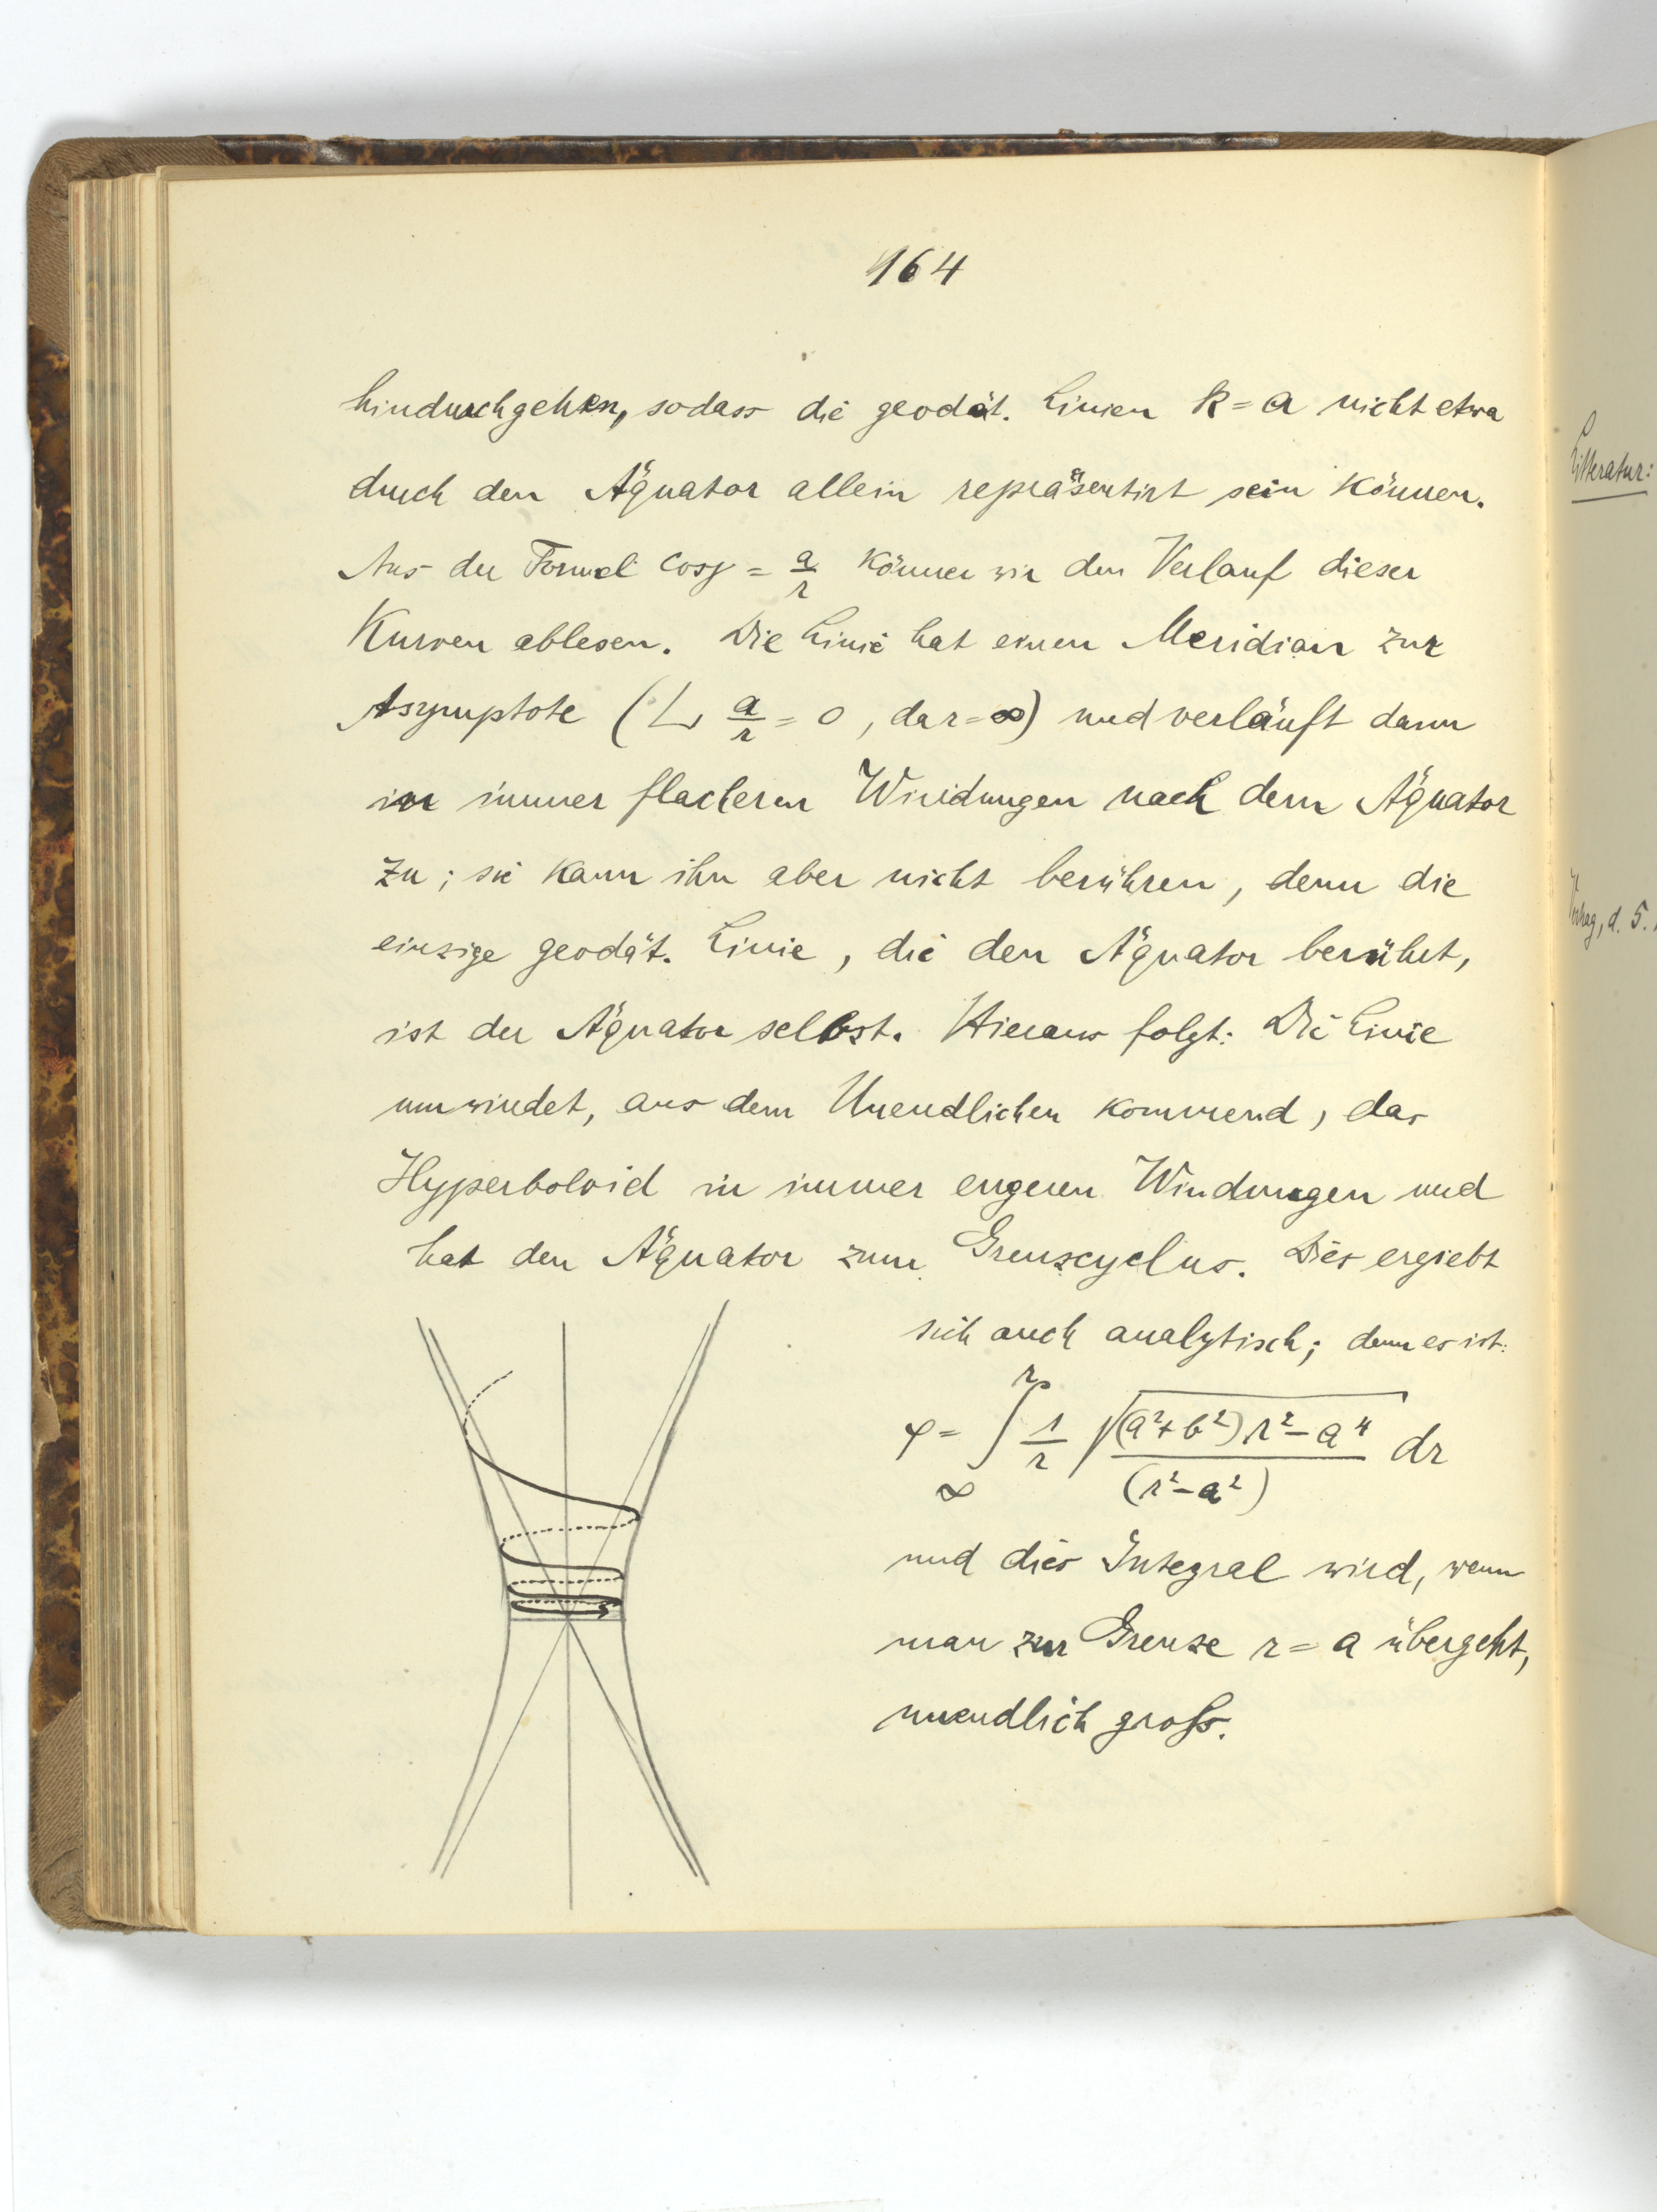 164
hindurchgehen, sodass die geodät. Linien k = a nicht etwa
durch den Äquator allein repräsentirt sein können.
Aus der Formel cos γ = a/r können wir den Verlauf dieser
Kurven ablesen. Die Linie hat einen Meridian zur
Asymptote (L a/r = 0, da r = ∞) und verläuft dann
in immer flacheren Windungen nach dem Äquator
zu; sie kann ihn aber nicht berühren, denn die
einzige geodät. Linie, die den Äquator berührt,
ist der Äquator selbst. Hieraus folgt: Die Linie
umwindet, aus dem Unendlichen kommend, das
Hyperboloid in immer engeren Windungen und
hat den Äquator zum Grenzcyclus. Dies ergiebt
sich auch analytisch; denn es ist:
φ = ∫_∞^r 1/r √((a²+b²)r²−a⁴ / (r²−a²)) dr
und dies Integral wird, wenn
man zur Grenze r = a übergeht,
unendlich groß.
Litteratur:
d. 5.